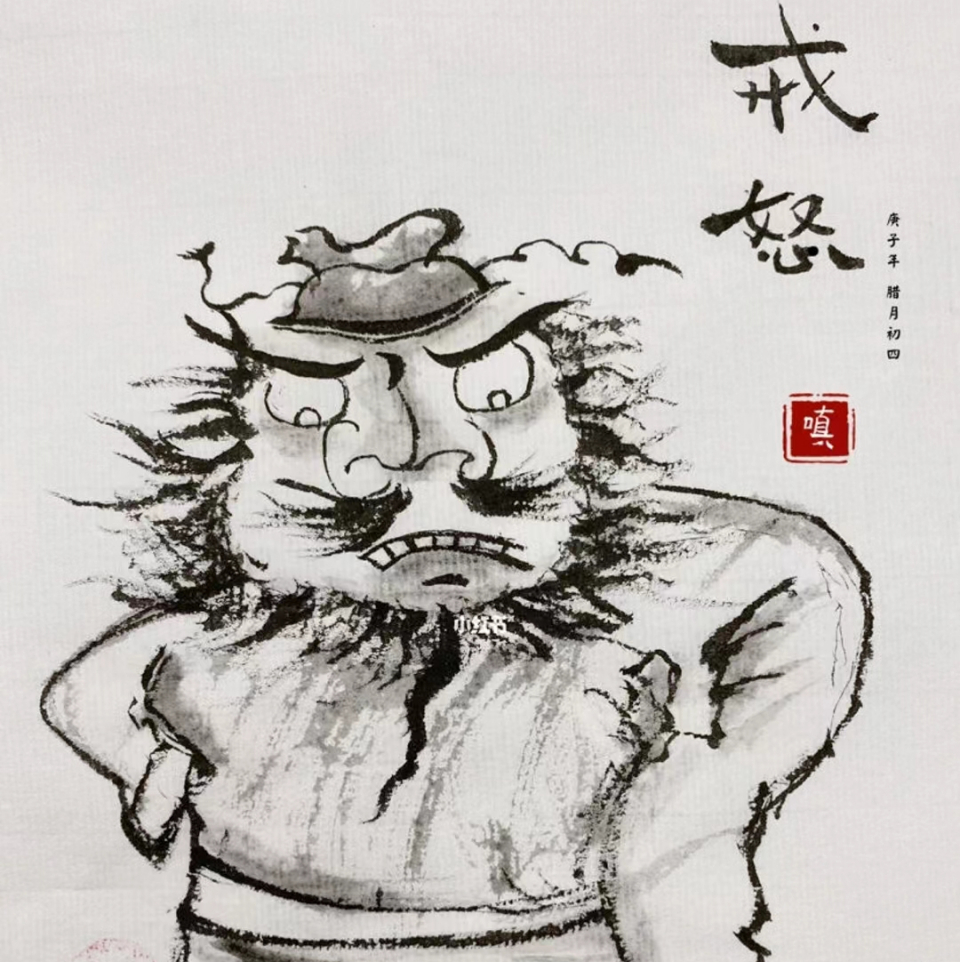 戒怒
庚子年 腊月初四
嗔
小红书